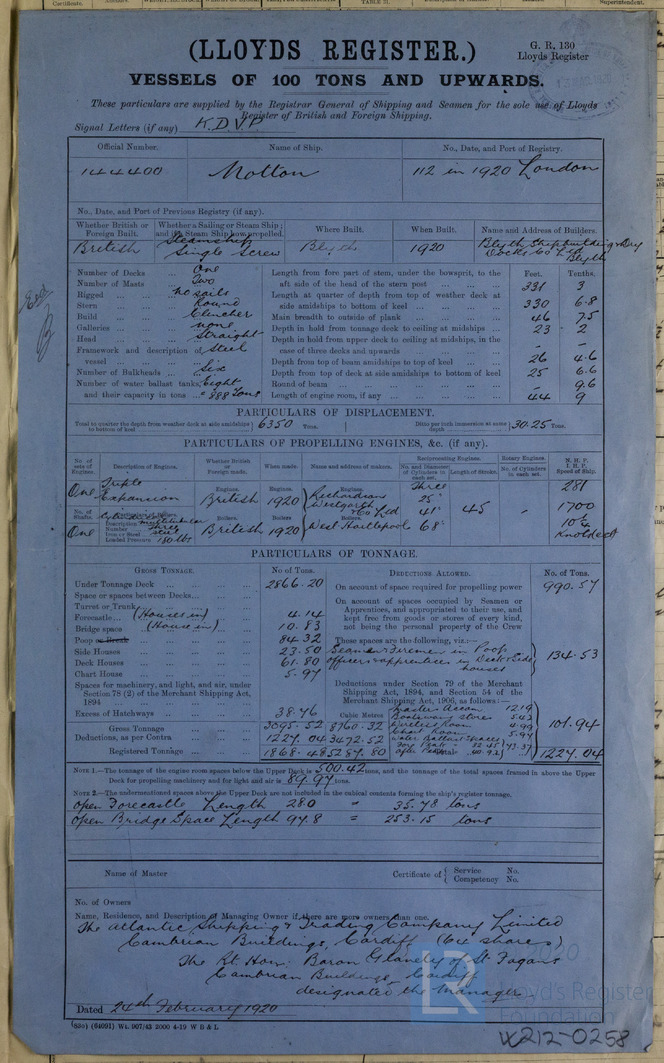 (LLOYDS REGISTER.)
G. R. 130
Lloyds Register
VESSELS OF 100 TONS AND UPWARDS.
These particulars are supplied by the Registrar General of Shipping and Seamen for the sole use of Lloyds
Register of British and Foreign Shipping.
Signal Letters (if any) K.D.V.P.
Official Number. Name of Ship. No., Date, and Port of Registry.
144400 Molton 112 in 1920 London
No., Date, and Port of Previous Registry (if any).
Whether British or Foreign Built. Whether a Sailing or Steam Ship; and if a Steam Ship how propelled. Where Built. When Built. Name and Address of Builders.
British Steamship Single Screw Blyth 1920 Blyth Shipbuilding & Dry Docks Co Ltd Blyth
Number of Decks ... One
Number of Masts ... Two
Rigged ... no sails
Stern ... Round
Build ... Clencher
Galleries ... none
Head ... Straight
Framework and description of vessel ... Steel
Number of Bulkheads ... Six
Number of water ballast tanks, eight
and their capacity in tons ... 888 Tons
Feet. Tenths.
Length from fore part of stem, under the bowsprit, to the
aft side of the head of the stern post ... 331 3
Length at quarter of depth from top of weather deck at
side amidships to bottom of keel ... 330 6.8
Main breadth to outside of plank ... 46 7.5
Depth in hold from tonnage deck to ceiling at midships ... 23 2
Depth in hold from upper deck to ceiling at midships, in the
case of three decks and upwards ... - -
Depth from top of beam amidships to top of keel ... 26 4.6
Depth from top of deck at side amidships to bottom of keel 25 6.6
Round of beam ... - 9.6
Length of engine room, if any ... 44 9
PARTICULARS OF DISPLACEMENT.
Total to quarter the depth from weather deck at side amidships to bottom of keel 6350 Tons. Ditto per inch immersion at same depth 30.25 Tons.
PARTICULARS OF PROPELLING ENGINES, &c. (if any).
No. of sets of Engines. Description of Engines. Whether British or Foreign made. When made. Name and address of makers. Reciprocating Engines. No. and Diameter of Cylinders in each set. Length of Stroke. Rotary Engines. No. of Cylinders in each set. N. H. P. I. H. P. Speed of Ship.
One Triple Expansion Engines. British Engines. 1920 Engines. Richardson Westgarth & Co Ltd Three 25" 41" 68" 45 - 281 1700
No. of Shafts. Description of Boilers.
One Number Three Iron or Steel steel Loaded Pressure 180 lbs Boilers. British Boilers 1920 Boilers. West Hartlepool
PARTICULARS OF TONNAGE.
GROSS TONNAGE. No of Tons.
Under Tonnage Deck ... 2866.20
Space or spaces between Decks...
Turret or Trunk...
Forecastle... (Houses in) 4.14
Bridge space (House in) 10.83
Poop or Break ... 84.32
Side Houses ... 23.50
Deck Houses ... 61.80
Chart House ... 5.97
Spaces for machinery, and light, and air, under
Section 78 (2) of the Merchant Shipping Act,
1894 ...
Excess of Hatchways ... 38.76
Cubic Metres
Gross Tonnage 3095.52 8760.32
Deductions, as per Contra 1227.04 3472.52
Registered Tonnage 1868.48 5287.80
DEDUCTIONS ALLOWED. No. of Tons.
On account of space required for propelling power 990.57
On account of spaces occupied by Seamen or
Apprentices, and appropriated to their use, and
kept free from goods or stores of every kind,
not being the personal property of the Crew
These spaces are the following, viz.:—
Seamen & Firemen in Poop
Officers & apprentices in Deck & Side houses 134.53
Deductions under Section 79 of the Merchant
Shipping Act, 1894, and Section 54 of the
Merchant Shipping Act, 1906, as follows:—
Master's Room 12.19
Boatswain's stores 5.42
Wireless Room 4.99
Chart Room 5.97
Water Ballast Spaces
Fore Peak 32.45
After Peak 40.92 73.37
101.94
Total 1227.04
NOTE 1.—The tonnage of the engine room spaces below the Upper Deck is 500.42 tons, and the tonnage of the total spaces framed in above the Upper
Deck for propelling machinery and for light and air is 89.97 tons.
NOTE 2.—The undermentioned spaces above the Upper Deck are not included in the cubical contents forming the ship's register tonnage.
Open Forecastle Length 28.0 = 35.78 tons
Open Bridge Space Length 97.8 = 253.15 tons
Name of Master Certificate of { Service No. Competency No.
No. of Owners
Name, Residence, and Description of Managing Owner if there are more owners than one.
The Atlantic Shipping & Trading Company Limited
Cambrian Buildings, Cardiff (64 shares)
The Rt Hon: Baron Glanely of St Fagans
Cambrian Buildings, Cardiff
designated the Manager
Dated 24th February 1920
(830) (64091) Wt. 907/43 2000 4-19 W B & L
LR Lloyd's Register Foundation
W212-0258